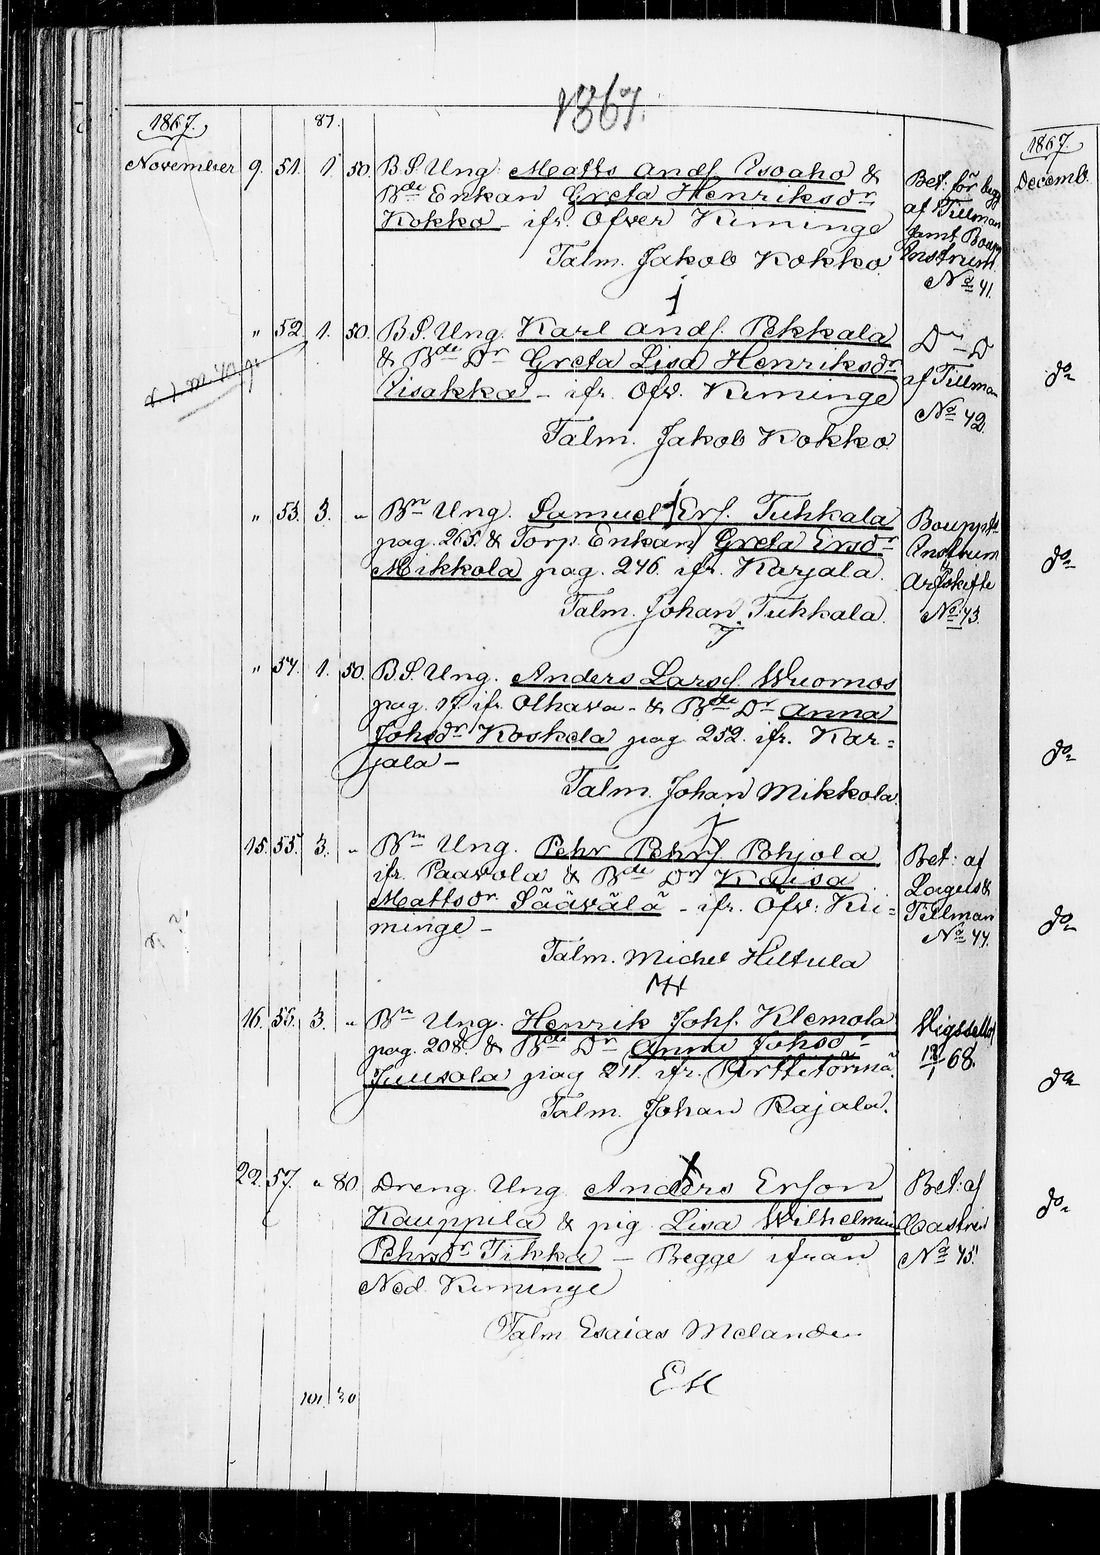 1867.
1867. 87.
November 9. 51. 1 50. B.S. Ung. Matts Andſ. Isoaho &
Bde Enkan Greta Henriksdr
Kokko - ifr. Öfver Kiminge
Talm. Jakob Kokko.
Bet. för begg
af Tillman
Instrum.
No 41.
" 52. 1. 50. B.S. Ung. Karl Andſ. Pekkala
& Bde Dr Greta Lisa Henriksdr
Iisakka - ifr. Öfv. Kiminge
Talm. Jakob Kokko.
D - D
af Tillman
No 42.
" 53. 3. " Bn Ung. Samuel Erſ. Tuhkala
pag. 265. & Torp. Enkan Greta Ersdr
Mikkola pag. 246. ifr. Karjala.
Talm. Johan Tuhkala.
Bouppt.
Instrum
Arfskifte
No 43.
" 54. 1. 50. B.S. Ung. Anders Larsſ. Wuornos
pag. 17 ifr. Olhava - & Bde Dr Anna
Johsdr Koskela pag. 252. ifr. Kar=
jala -
Talm. Johan Mikkola.
15. 55. 3. " Bn Ung. Pehr Pehrſ. Pohjola
ifr. Paavola & Bde Dr Kaisa
Mattsdr Säävälä - ifr. Öfv: Kii=
minge -
Talm. Michel Hiltula
MH
Bet: af
Lagus &
Tillman
No 44.
16. 56. 3. " Bn Ung. Henrik Johſ. Klemola
pag. 208. & Bde Dr Anna Johsdr
Juusola pag 211. ifr. Purttitörmä.
Talm. Johan Rajala.
Vigssedel
12/1 68.
22. 57. " 80. Dreng. Ung. Anders Erſon
Kauppila & pig. Lisa Wilhelmina
Pehrsdr Tikka - Begge ifrån
Ned. Kiminge
Talm Esaias Melander
EM
Bet: af
Castrén
No 45.
101. 30
1867.
Decemb.
do
do
do
do
do
do